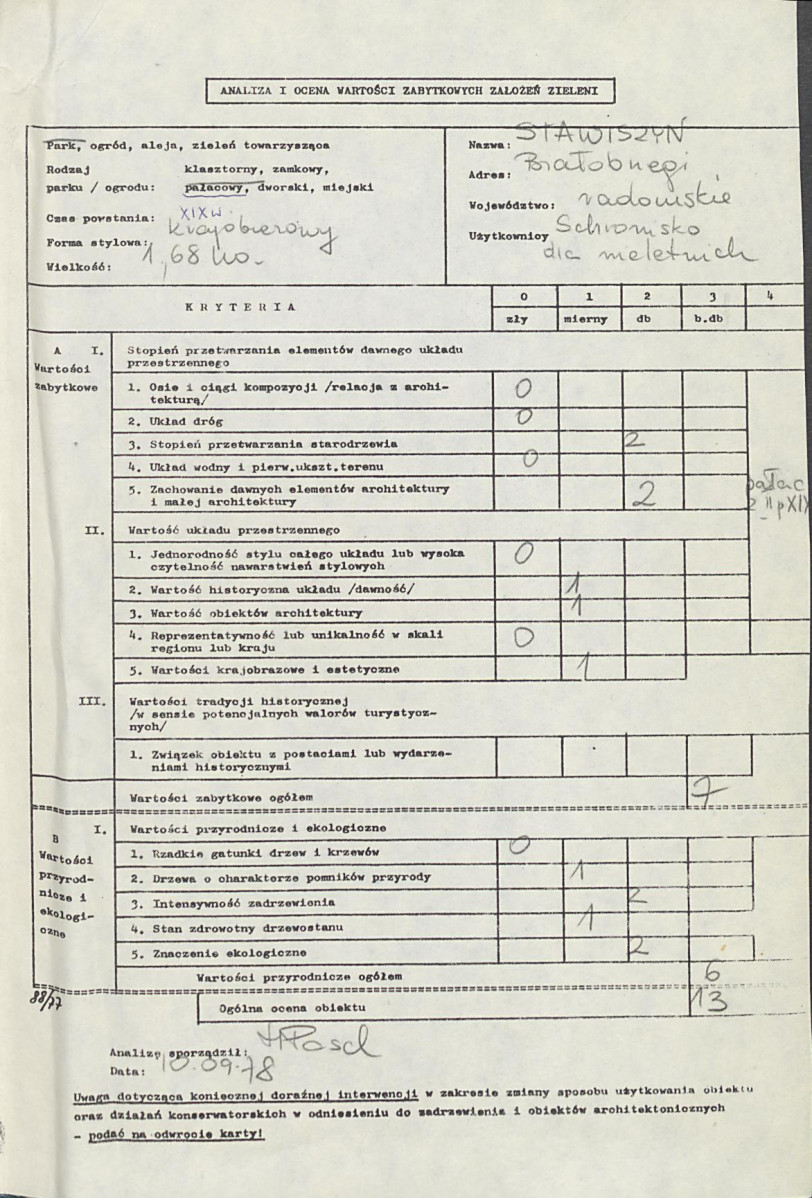 ANALIZA I OCENA WARTOŚCI ZABYTKOWYCH ZAŁOŻEŃ ZIELENI
Park, ogród, aleja, zieleń towarzysząca
Rodzaj klasztorny, zamkowy,
parku / ogrodu: pałacowy, dworski, miejski
Czas powstania: XIXw.
Forma stylowa: krajobrazowy
Wielkość: 1,68 ha
Nazwa: STAWISZYN
Adres: Białobrzegi
Województwo: radomskie
Użytkownicy Schronisko
dla nieletnich
KRYTERIA
0 1 2 3 4
zły mierny db b.db
A I. Stopień przetwarzania elementów dawnego układu
przestrzennego
Wartości
zabytkowe
1. Osie i ciągi kompozycji /relacja z archi-
tekturą/ 0
2. Układ dróg 0
3. Stopień przetwarzania starodrzewia 2
4. Układ wodny i pierw.ukszt.terenu 0
5. Zachowanie dawnych elementów architektury
i małej architektury 2
pałac
z II p XIX
II. Wartość układu przestrzennego
1. Jednorodność stylu całego układu lub wysoka
czytelność nawarstwień stylowych 0
2. Wartość historyczna układu /dawność/ 1
3. Wartość obiektów architektury 1
4. Reprezentatywność lub unikalność w skali
regionu lub kraju 0
5. Wartości krajobrazowe i estetyczne 1
III. Wartości tradycji historycznej
/w sensie potencjalnych walorów turystycz-
nych/
1. Związek obiektu z postaciami lub wydarze-
niami historycznymi
Wartości zabytkowe ogółem 7
B I. Wartości przyrodnicze i ekologiczne
Wartości
przyrod-
nicze i
ekologi-
czne
1. Rzadkie gatunki drzew i krzewów 0
2. Drzewa o charakterze pomników przyrody 1
3. Intensywność zadrzewienia 2
4. Stan zdrowotny drzewostanu 1
5. Znaczenie ekologiczne 2
Wartości przyrodnicze ogółem 6
88/77
Ogólna ocena obiektu 13
Analizę sporządził:
Data: 10.09.78
Uwaga dotycząca koniecznej doraźnej interwencji w zakresie zmiany sposobu użytkowania obiektu
oraz działań konserwatorskich w odniesieniu do zadrzewienia i obiektów architektonicznych
- podać na odwrocie karty!